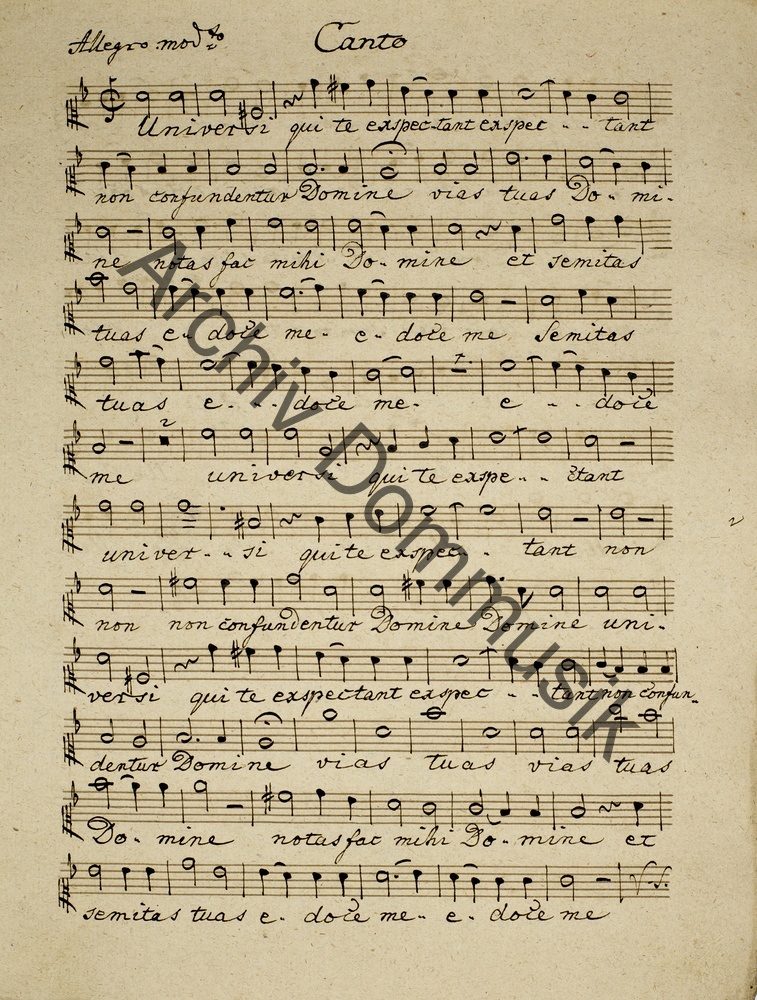 Allegro mod.to Canto
Universi qui te exspectant exspec - - tant
non confundentur Domine vias tuas Do - mi -
ne notas fac mihi Do - mine et semitas
tuas e - doce me - e - doce me Semitas
tuas e - - doce me - e - - doce
2
me universi qui te exspe - - ctant
univer - - si qui te exspec - - tant non
non non confundentur Domine Domine uni -
versi qui te exspectant exspec - - tant non confun -
dentur Domine vias tuas vias tuas
Do - mine notas fac mihi Do - mine et
semitas tuas e - doce me - e - doce me
V. S.
Archiv Dommusik